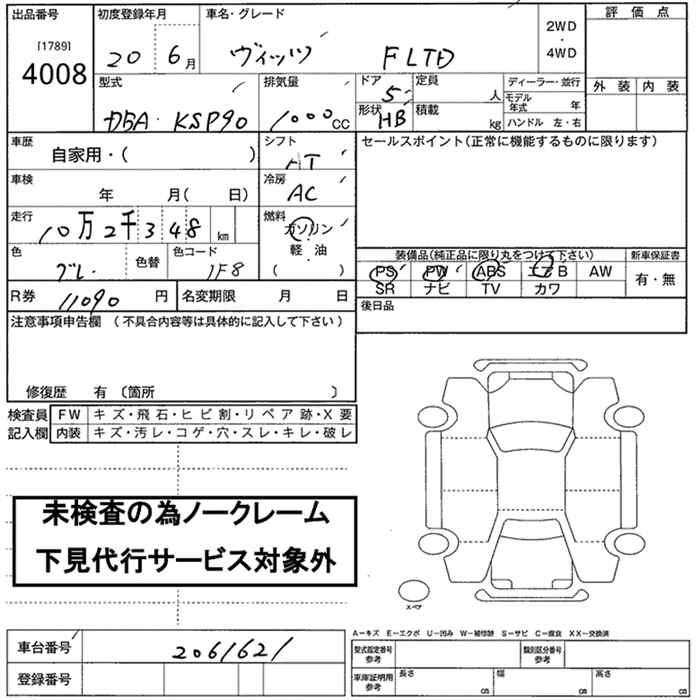 出品番号
[1789]
4008
初度登録年月
20 6月
車名・グレード
ヴィッツ F LTD
2WD
・
4WD
評価点
外装 内装
型式
DBA-KSP90
排気量
1000cc
ドア
5
形状
HB
定員
人
積載
kg
ディーラー・並行
モデル年式 年
ハンドル 左・右
車歴
自家用・( )
シフト
AT
セールスポイント(正常に機能するものに限ります)
車検
年 月( 日)
冷房
AC
走行
10万2千348km
燃料
ガソリン
・
軽・油
( )
色
グレ
色替
色コード
1F8
装備品(純正品に限り丸をつけて下さい)
PS PW ABS エアB AW
SR ナビ TV カワ
新車保証書
有・無
R券 11090円
名変期限 月 日
後日品
注意事項申告欄 (不具合内容等は具体的に記入して下さい)
修復歴 有 〔箇所 〕
検査員
記入欄
FW キズ・飛石・ヒビ割・リペア跡・X要
内装 キズ・汚レ・コゲ・穴・スレ・キレ・破レ
未検査の為ノークレーム
下見代行サービス対象外
スペア
A-キズ E-エクボ U-凹み W-補修跡 S-サビ C-腐食 XX-交換済
車台番号 2061621
登録番号
型式指定番号
参考
類別区分番号
参考
車庫証明用
参考
長さ cm
幅 cm
高さ cm